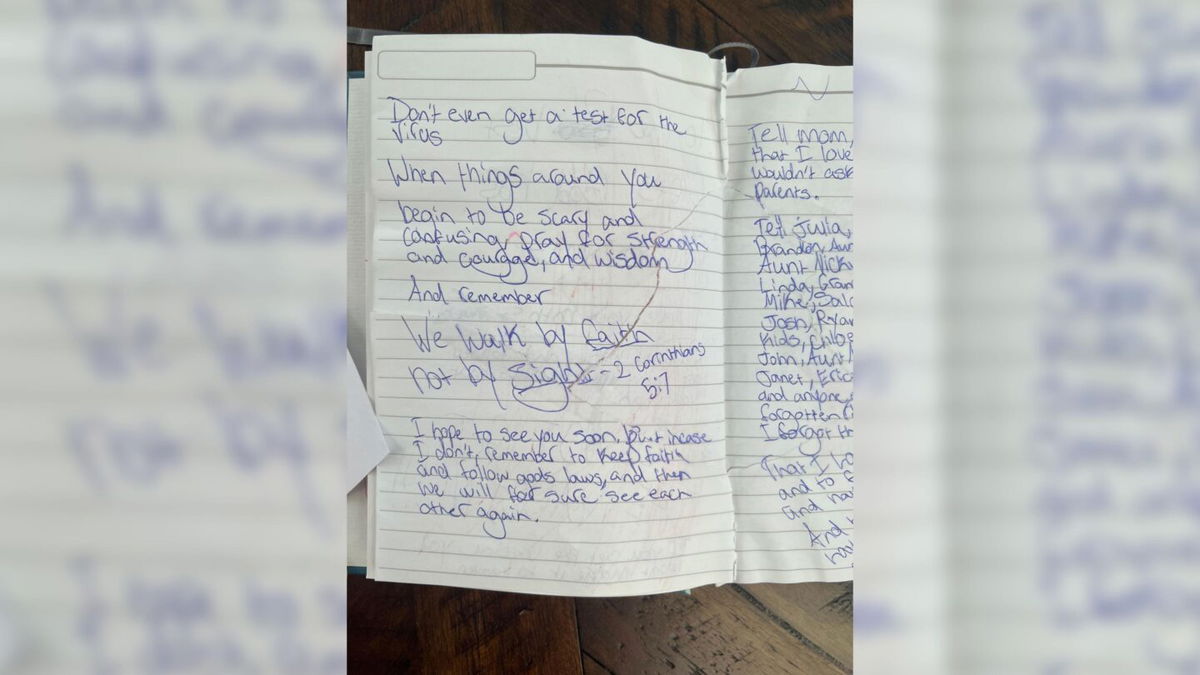 Don't even get a test for the
virus
When things around you
begin to be scary and
confusing, pray for strength
and courage, and wisdom
And remember
We walk by faith
not by sight - 2 Corinthians
5:7
I hope to see you soon, but incase
I don't, remember to keep faith
and follow gods laws, and then
we will for sure see each
other again.
Tell mom,
that I love
wouldn't ask
parents.
Tell Julia,
Brandon, Aun
Aunt Nick
Linda, Gran
Mike, Salo
Josh, Ryan
kids, Chloe
John, Aunt
Janet, Eric
and anyone
forgotten
I forgot th
That I
and to
and
And